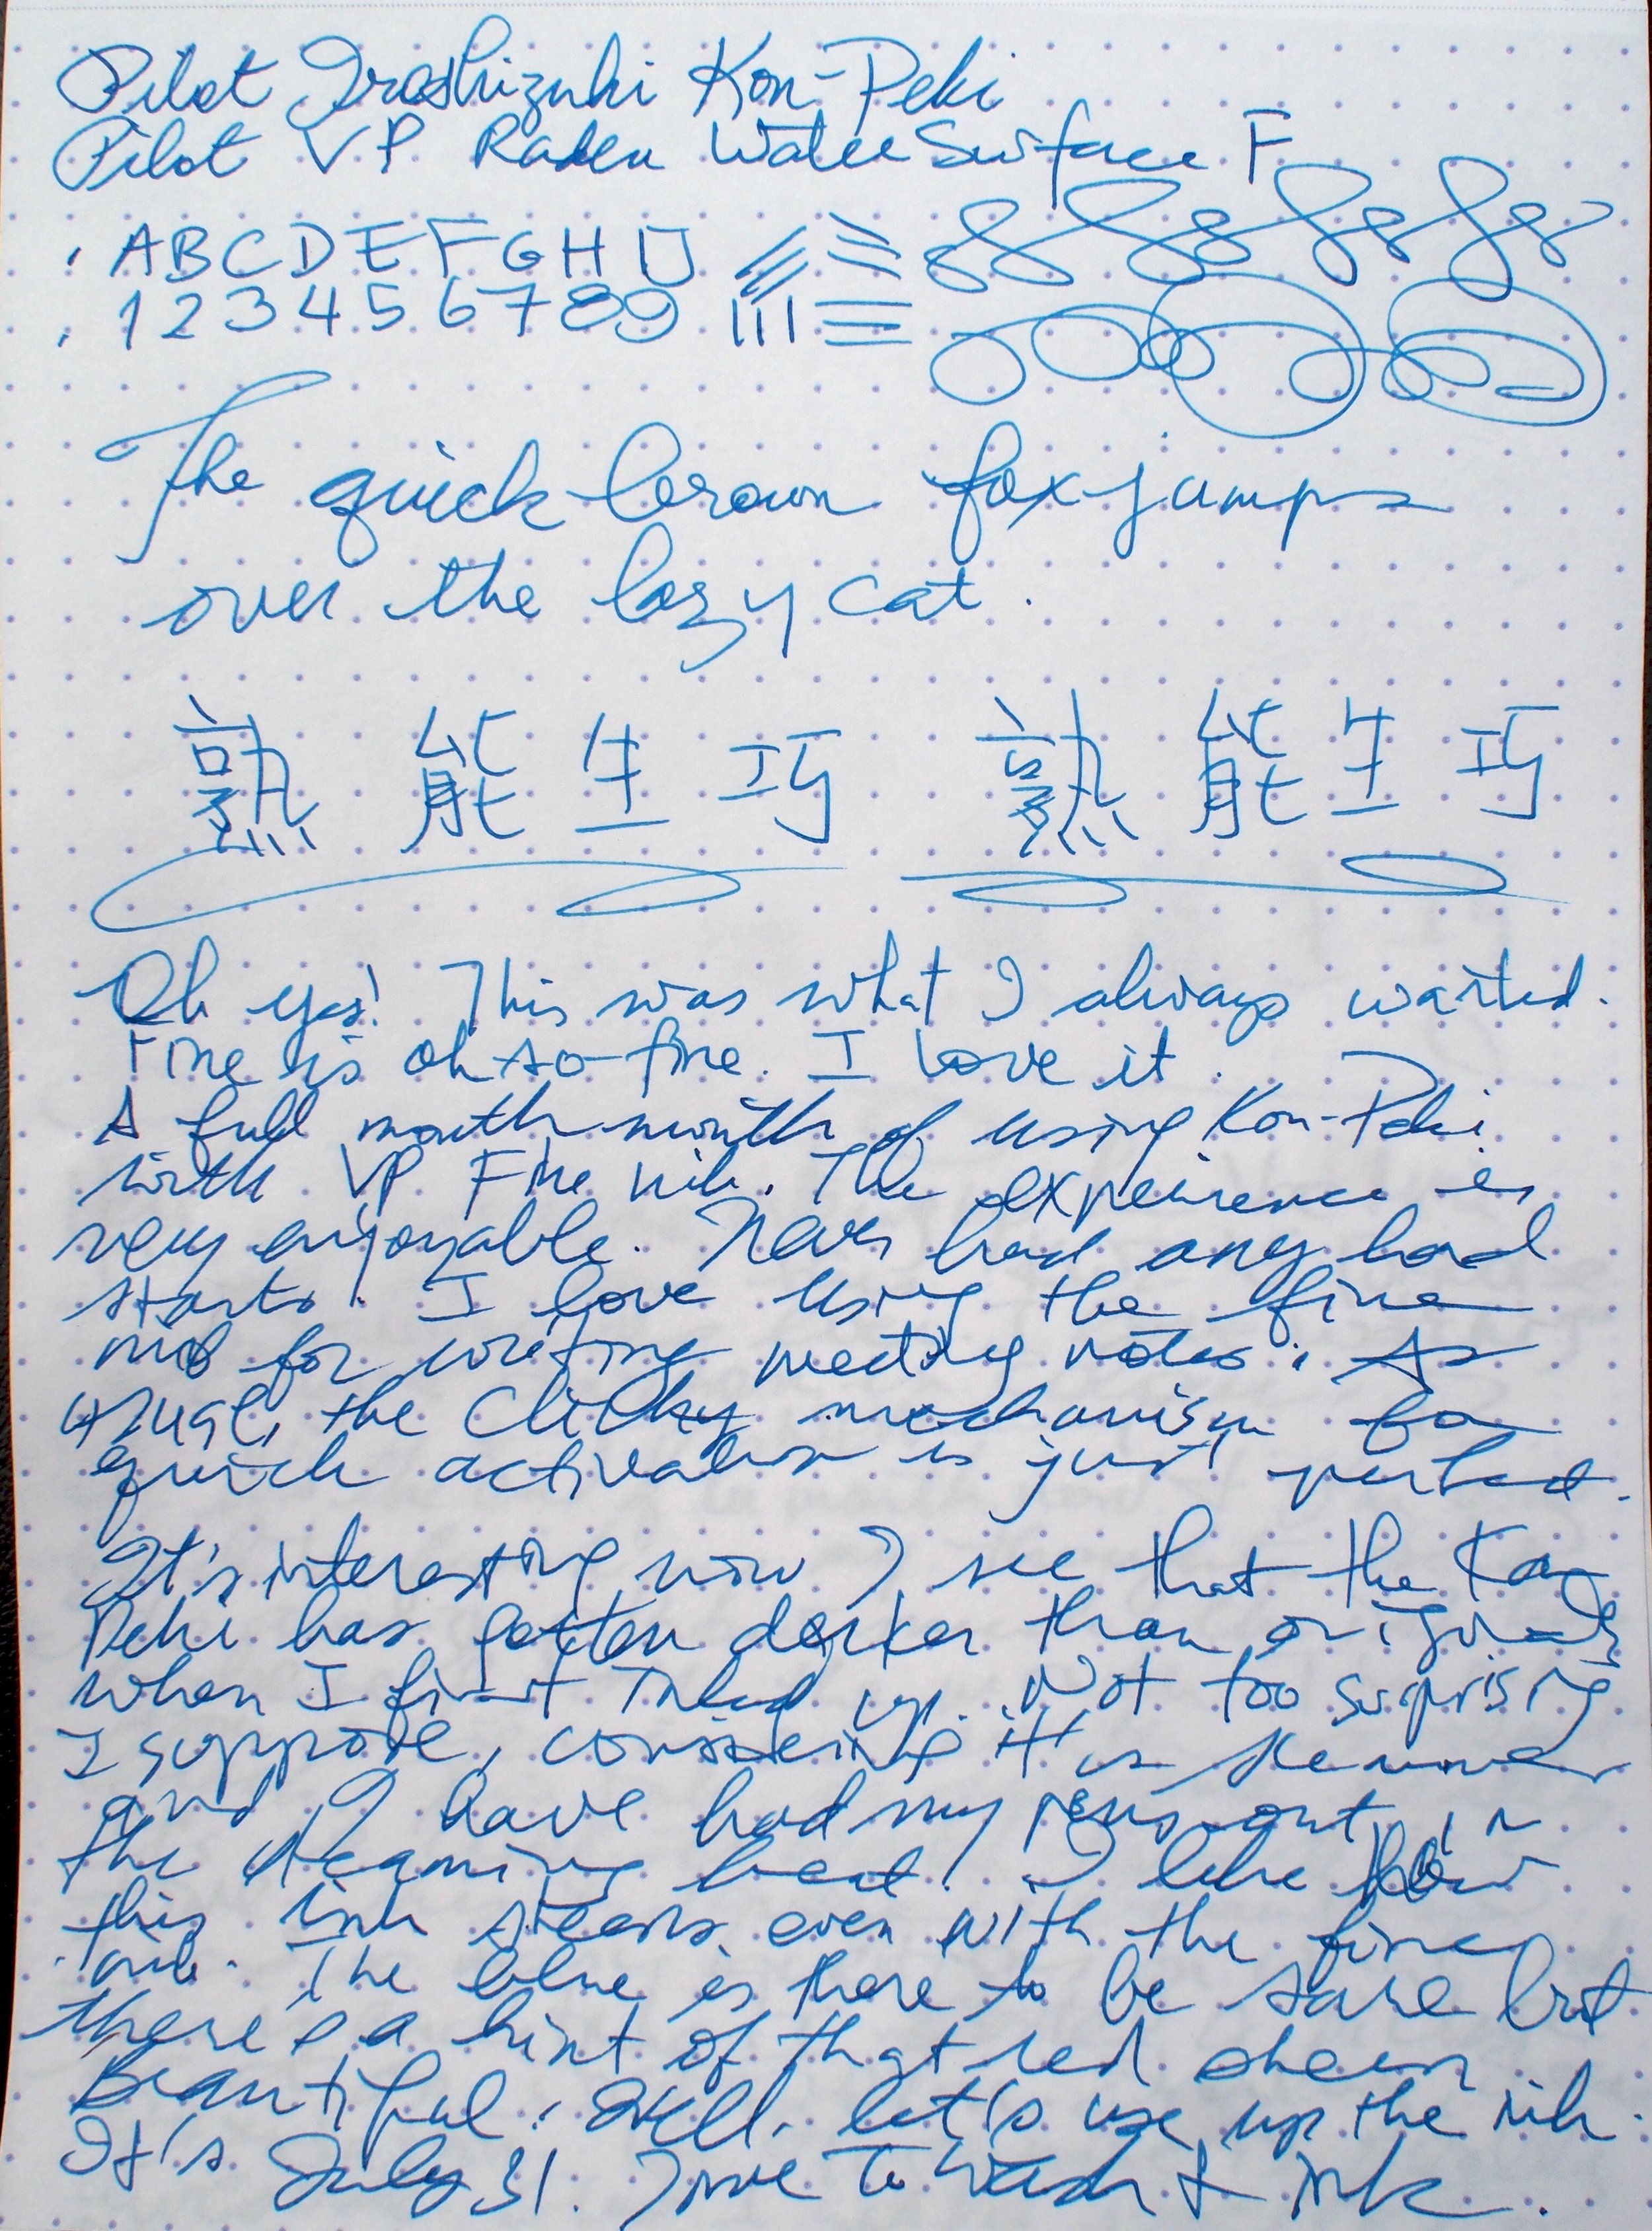 Pilot Iroshizuki Kon-Peki
Pilot VP Raden Water Surface F
ABCDEFGHIJ
123456789
The quick brown fox jumps
over the lazy cat.
熟能生巧 熟能生巧
Oh yes! This was what I always wanted.
Fine is oh-so-fine. I love it.
A full month month of using Kon-Peki
with VP Fine nib. The experience is
very enjoyable. Never had any hard
starts. I love using the fine
nib for writing meeting notes. As
usual, the clicky mechanism for
quick activation is just perfect.
It's interesting now I see that the Kon
Peki has gotten darker than originally
when I first inked up. Not too surprising
I suppose, considering it is summer
and I have had my pens out in
the steaming heat. I like how
this ink sheens even with the fine
nib. The blue is there to be sure but
there's a hint of that red sheen
Beautiful. Still, let's use up the ink.
It's July 31. Time to wash & ink.